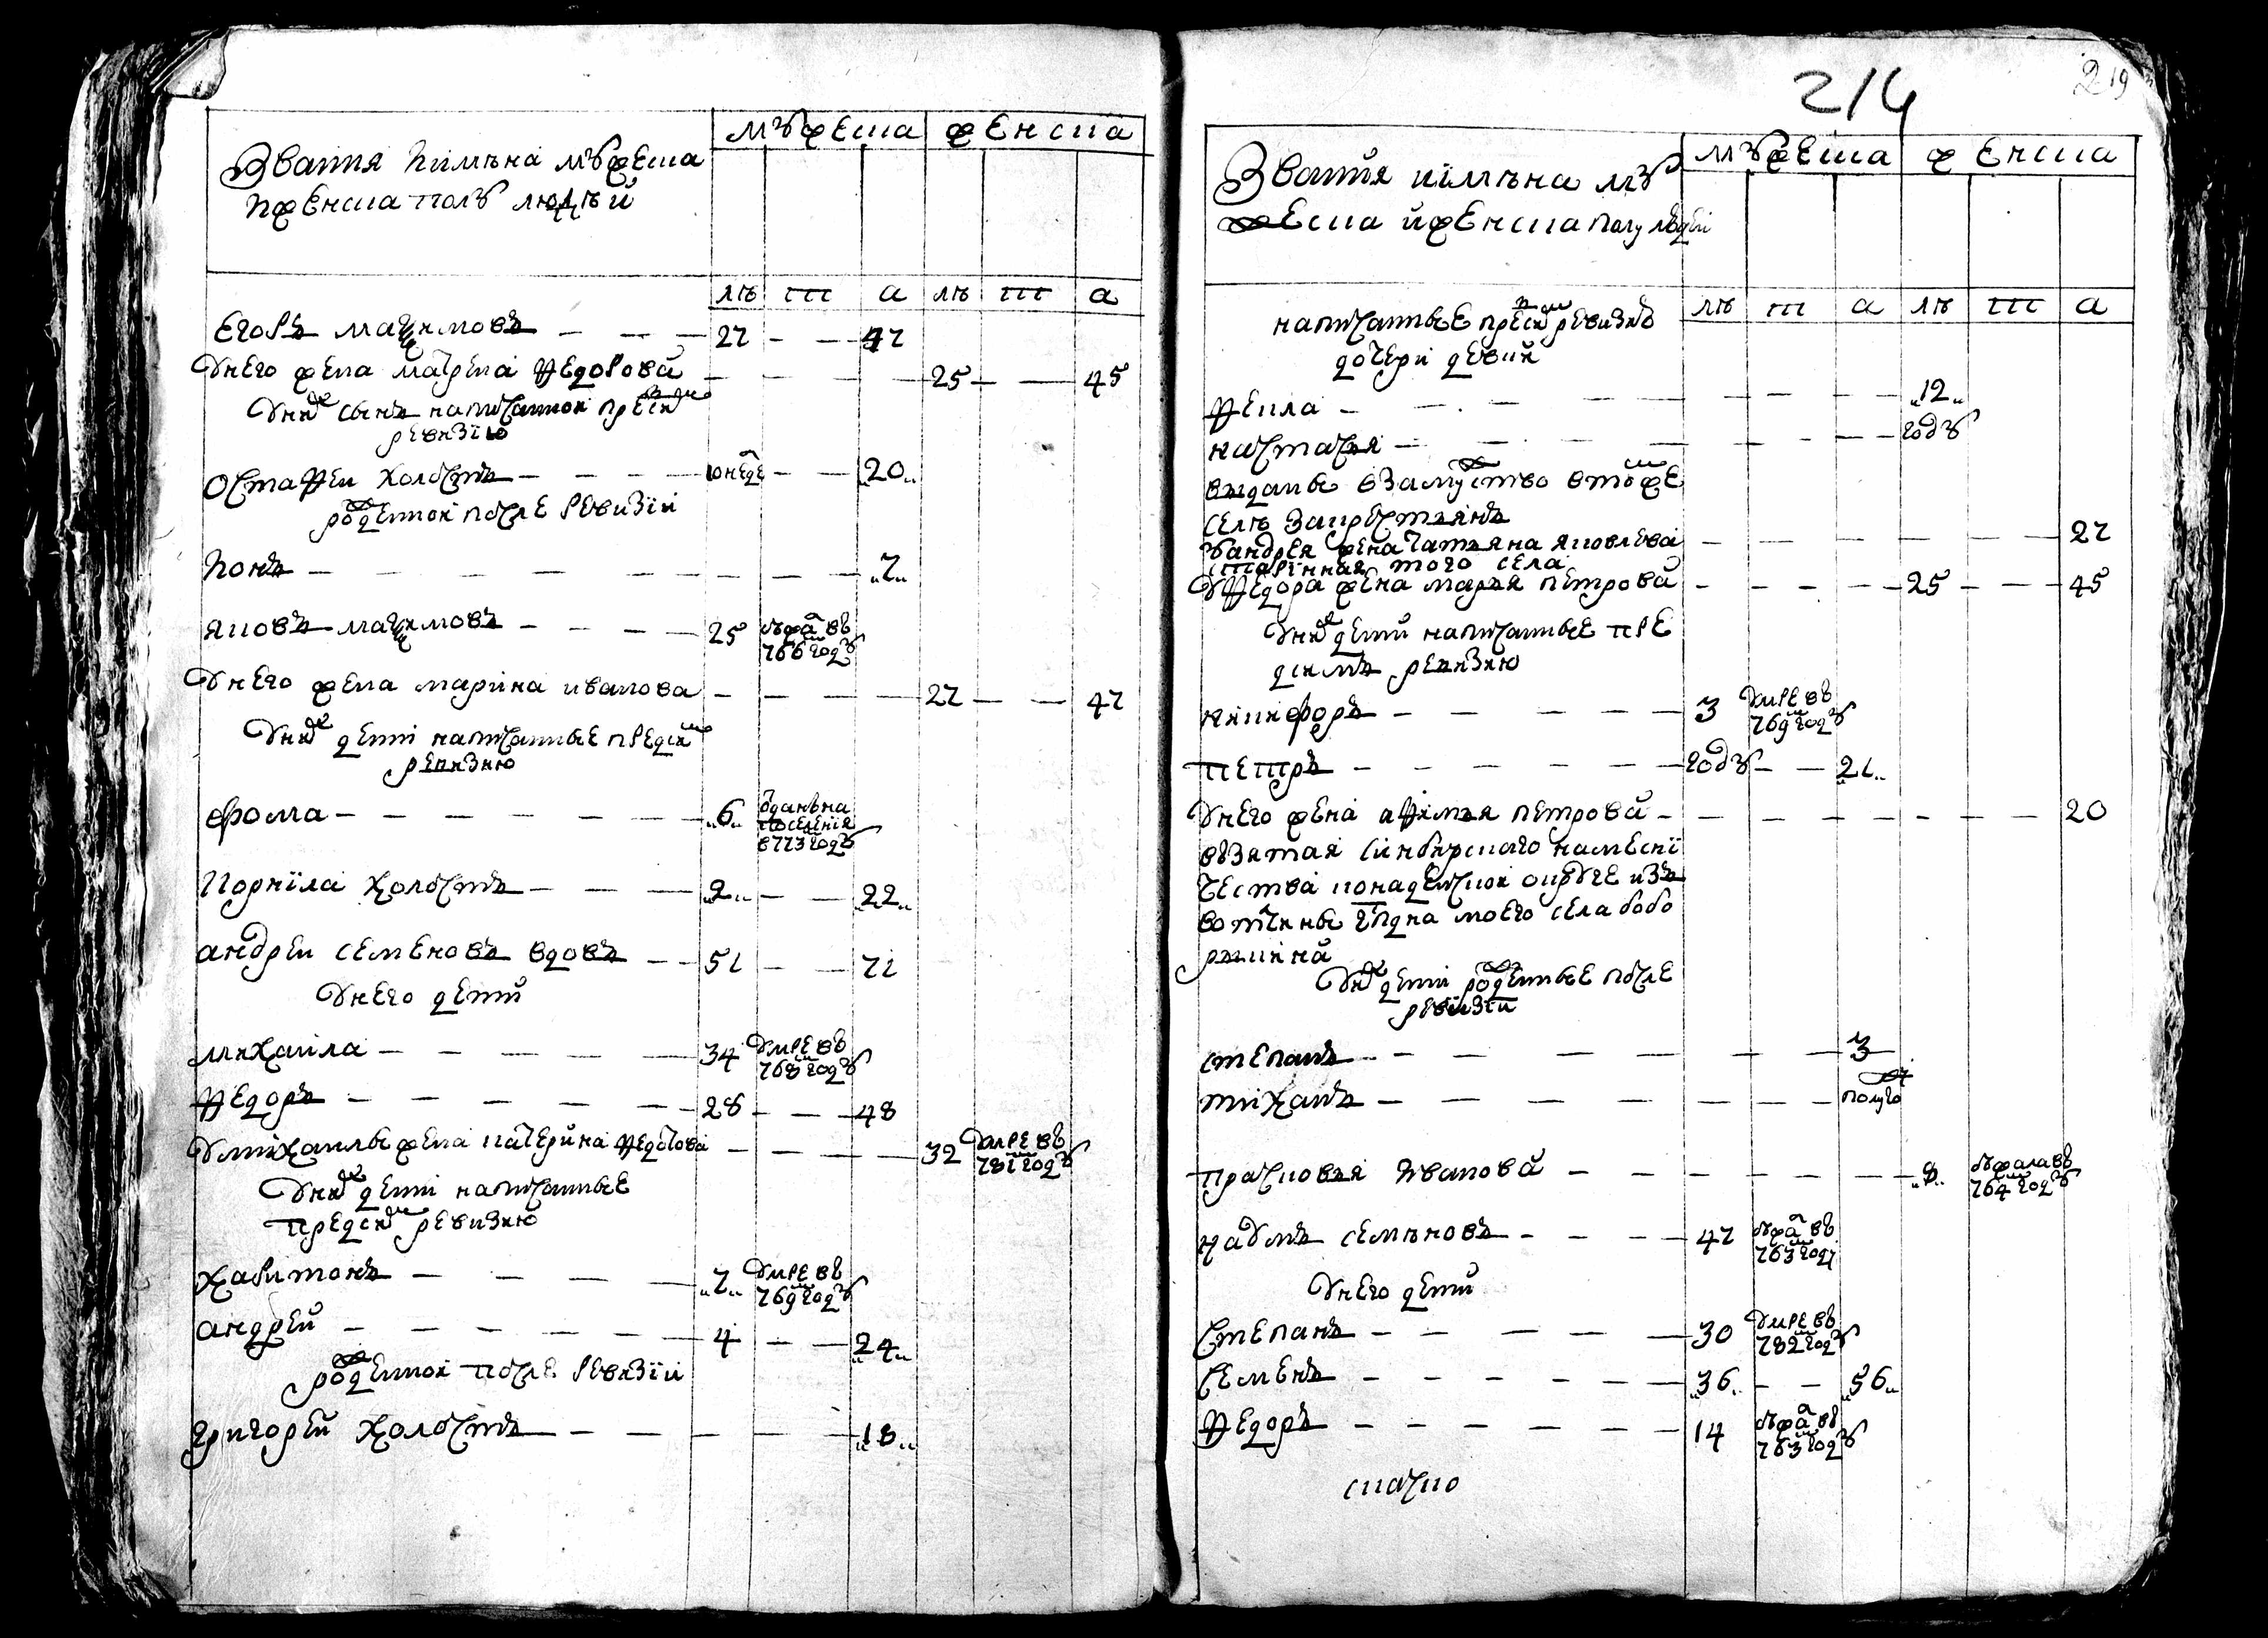 Звания иимѣна мужеска
ижѣнска полу людѣй
мужеска женска
лѣ т а лѣ т а
Егоръ маѯимовъ 27 47
Унего жена матрена Ѳедорова 25 45
Уних сынъ написанной пред сим
ревизїю
Остаѳеи холостъ 20
рожденной после ревизїи
Ионъ 7
яковъ маѯимовъ 25 бѣжа въ
766м году
Унего жена марина иванова 27 47
Уних дети написанные пред сим
ревизию
фома 6 одан на
поселения
в 773 году
Корнїла холостъ 2 22
андреи семеновъ вдовъ 51 71
Унего дети
михаила 34 Умре въ
768м году
Ѳедоръ 28 48
Умихаилы жена катерина Ѳедотова 32 Умре въ
781м году
Уних дети написанные
пред сим ревизию
харитонъ 7 Умре въ
769м году
андрей 4 24
рожденной после ревизїи
григорей холостъ 18
214
219
Звания иїмѣна му
жеска ижѣнска полу людѣй
мужеска женска
лѣ т а лѣ т а
написанные пред сим ревизию
дочери девки
Ѳекла 12
настасья году
выданы взамужство втомже
селѣ закрестьянъ
Уандрея жена татьяна яковлева 27
старинная того села
УѲедора жена марья петрова 25 45
Уних дети написанные пре
дсимъ ревизию
никифоръ 3 Умре въ
769м году
петръ году 21
Унего жена аѲимья петрова 20
взятая синбирскаго намесни
чества изъ
вотчины моего села бобо
рыкина
Уних дети рожденные после
ревизїи
степанъ 3
тиханъ полуго
прасковья иванова 8 бѣжала въ
764м году
наумъ семѣновъ 47 бѣжа въ
763м году
Унего дети
Степанъ 30 Умре въ
782м году
Семенъ 36 56
Ѳедоръ 14 бѣжа въ
763м году